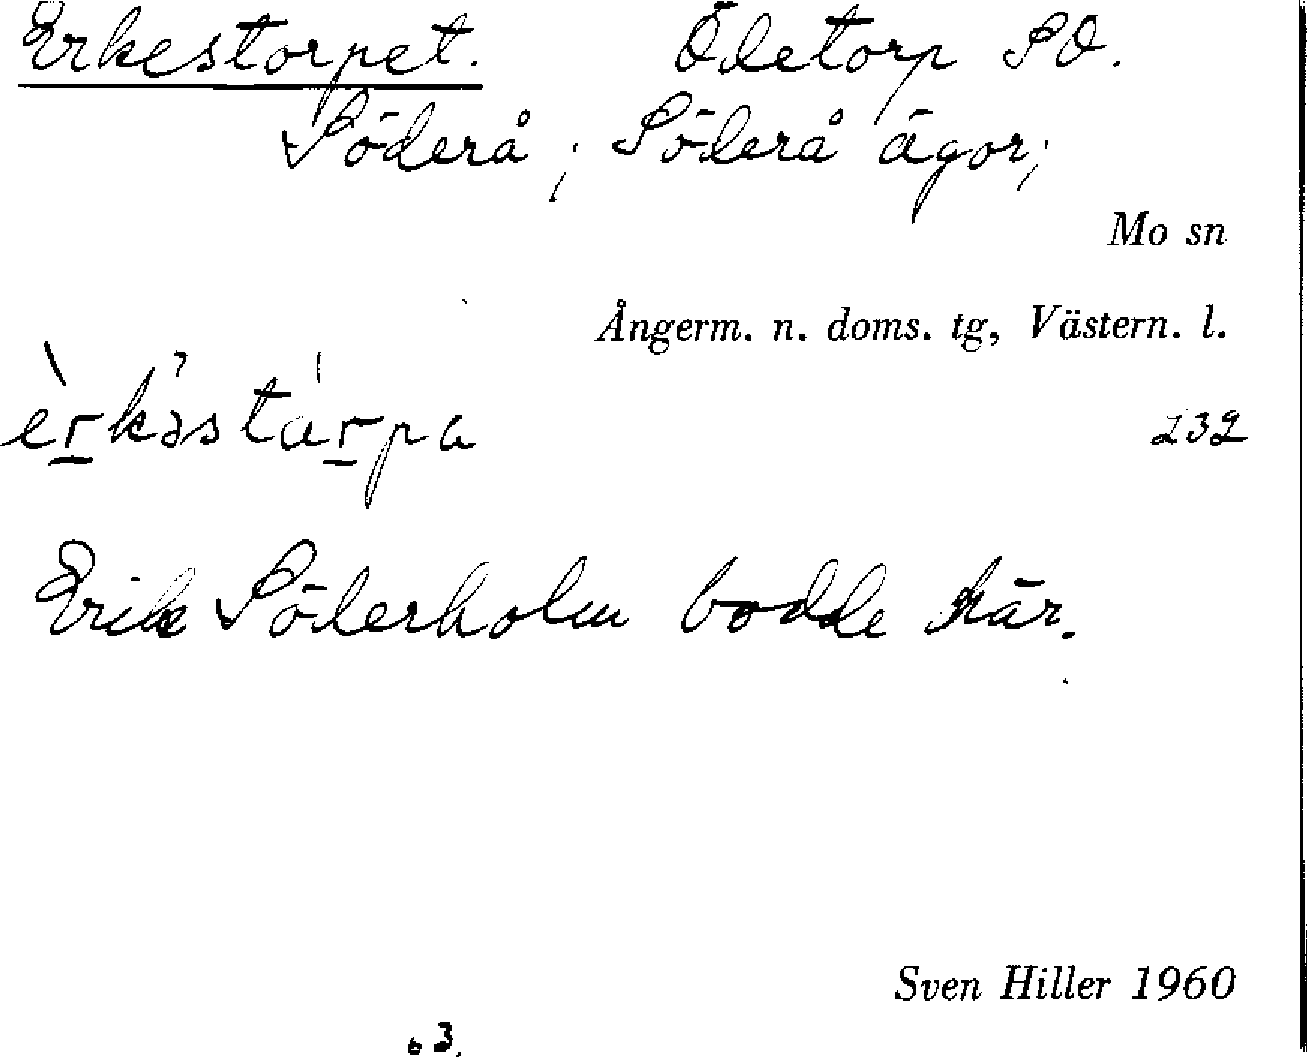 Erkestorpet. Ödetorp SO.
Söderå ; Söderå ägor;
Mo sn
Ångerm. n. doms. tg, Västern. l.
232
Erik Söderholm bodde här.
Sven Hiller 1960